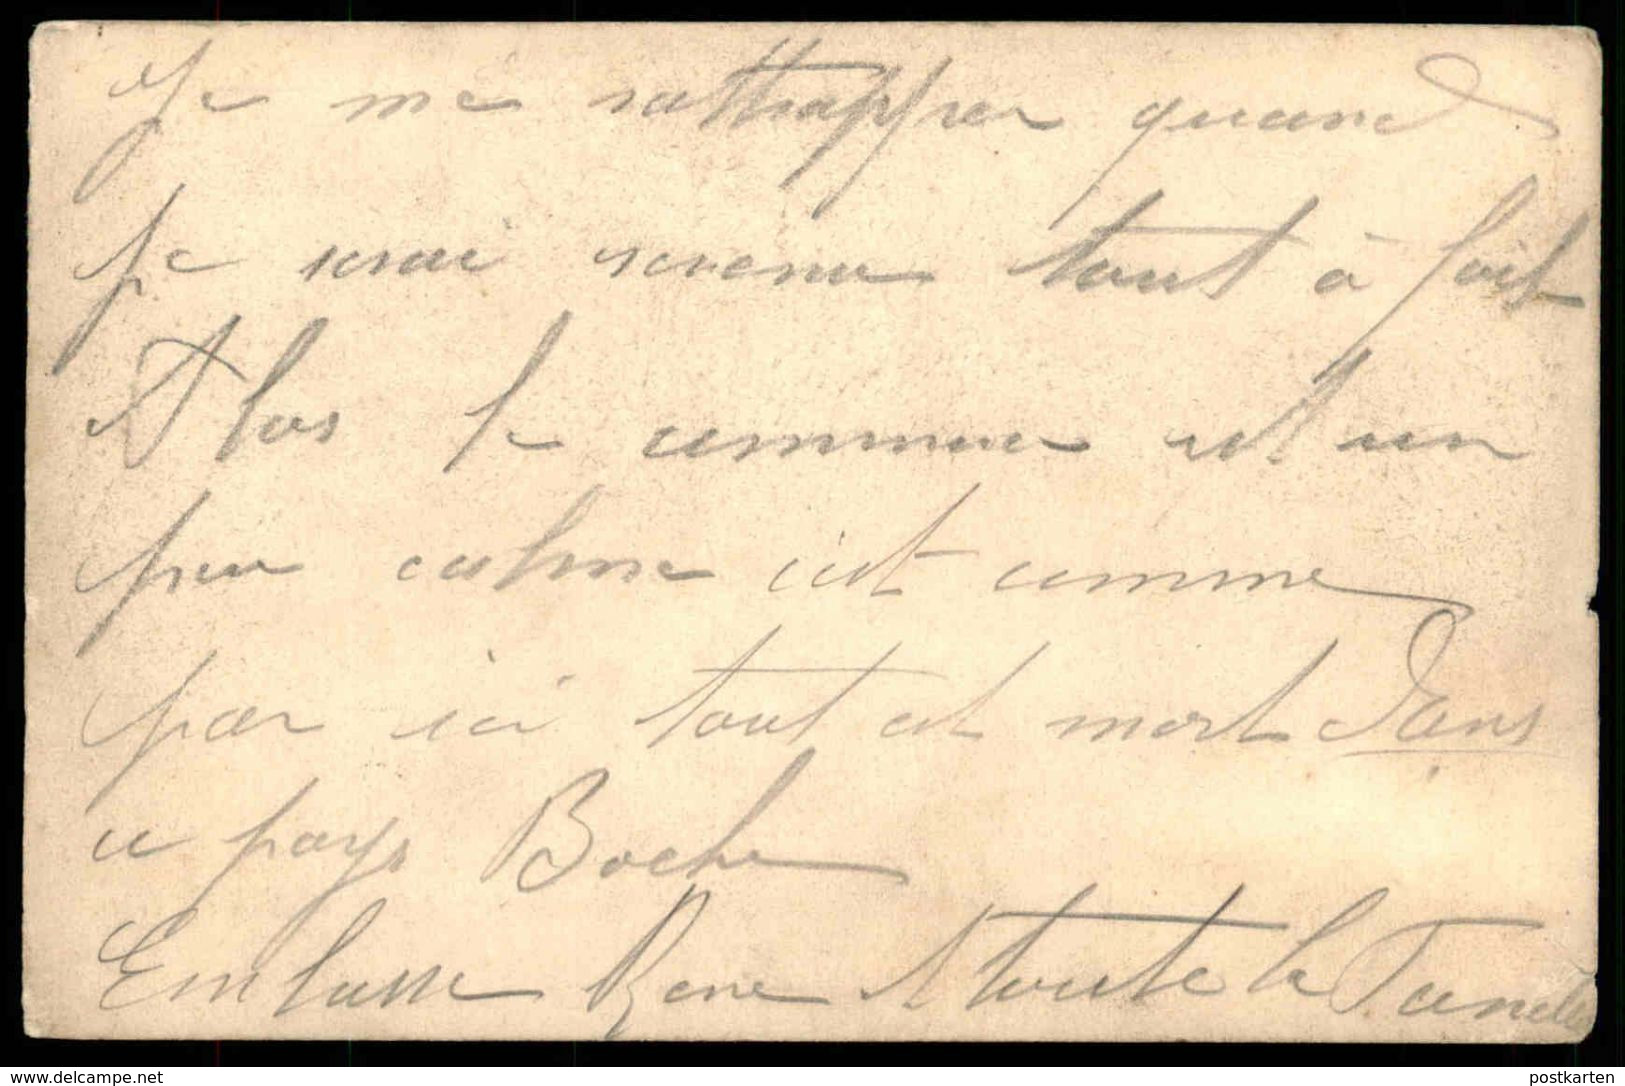 Je me rattrapper quand
je serai revenu tout à fait
Alors le commerce est un
peu calme c'est comme
par ici tout est mort Dans
ce pays Boche
Embrasse René et toute la Famille
www.delcampe.net
postkarten